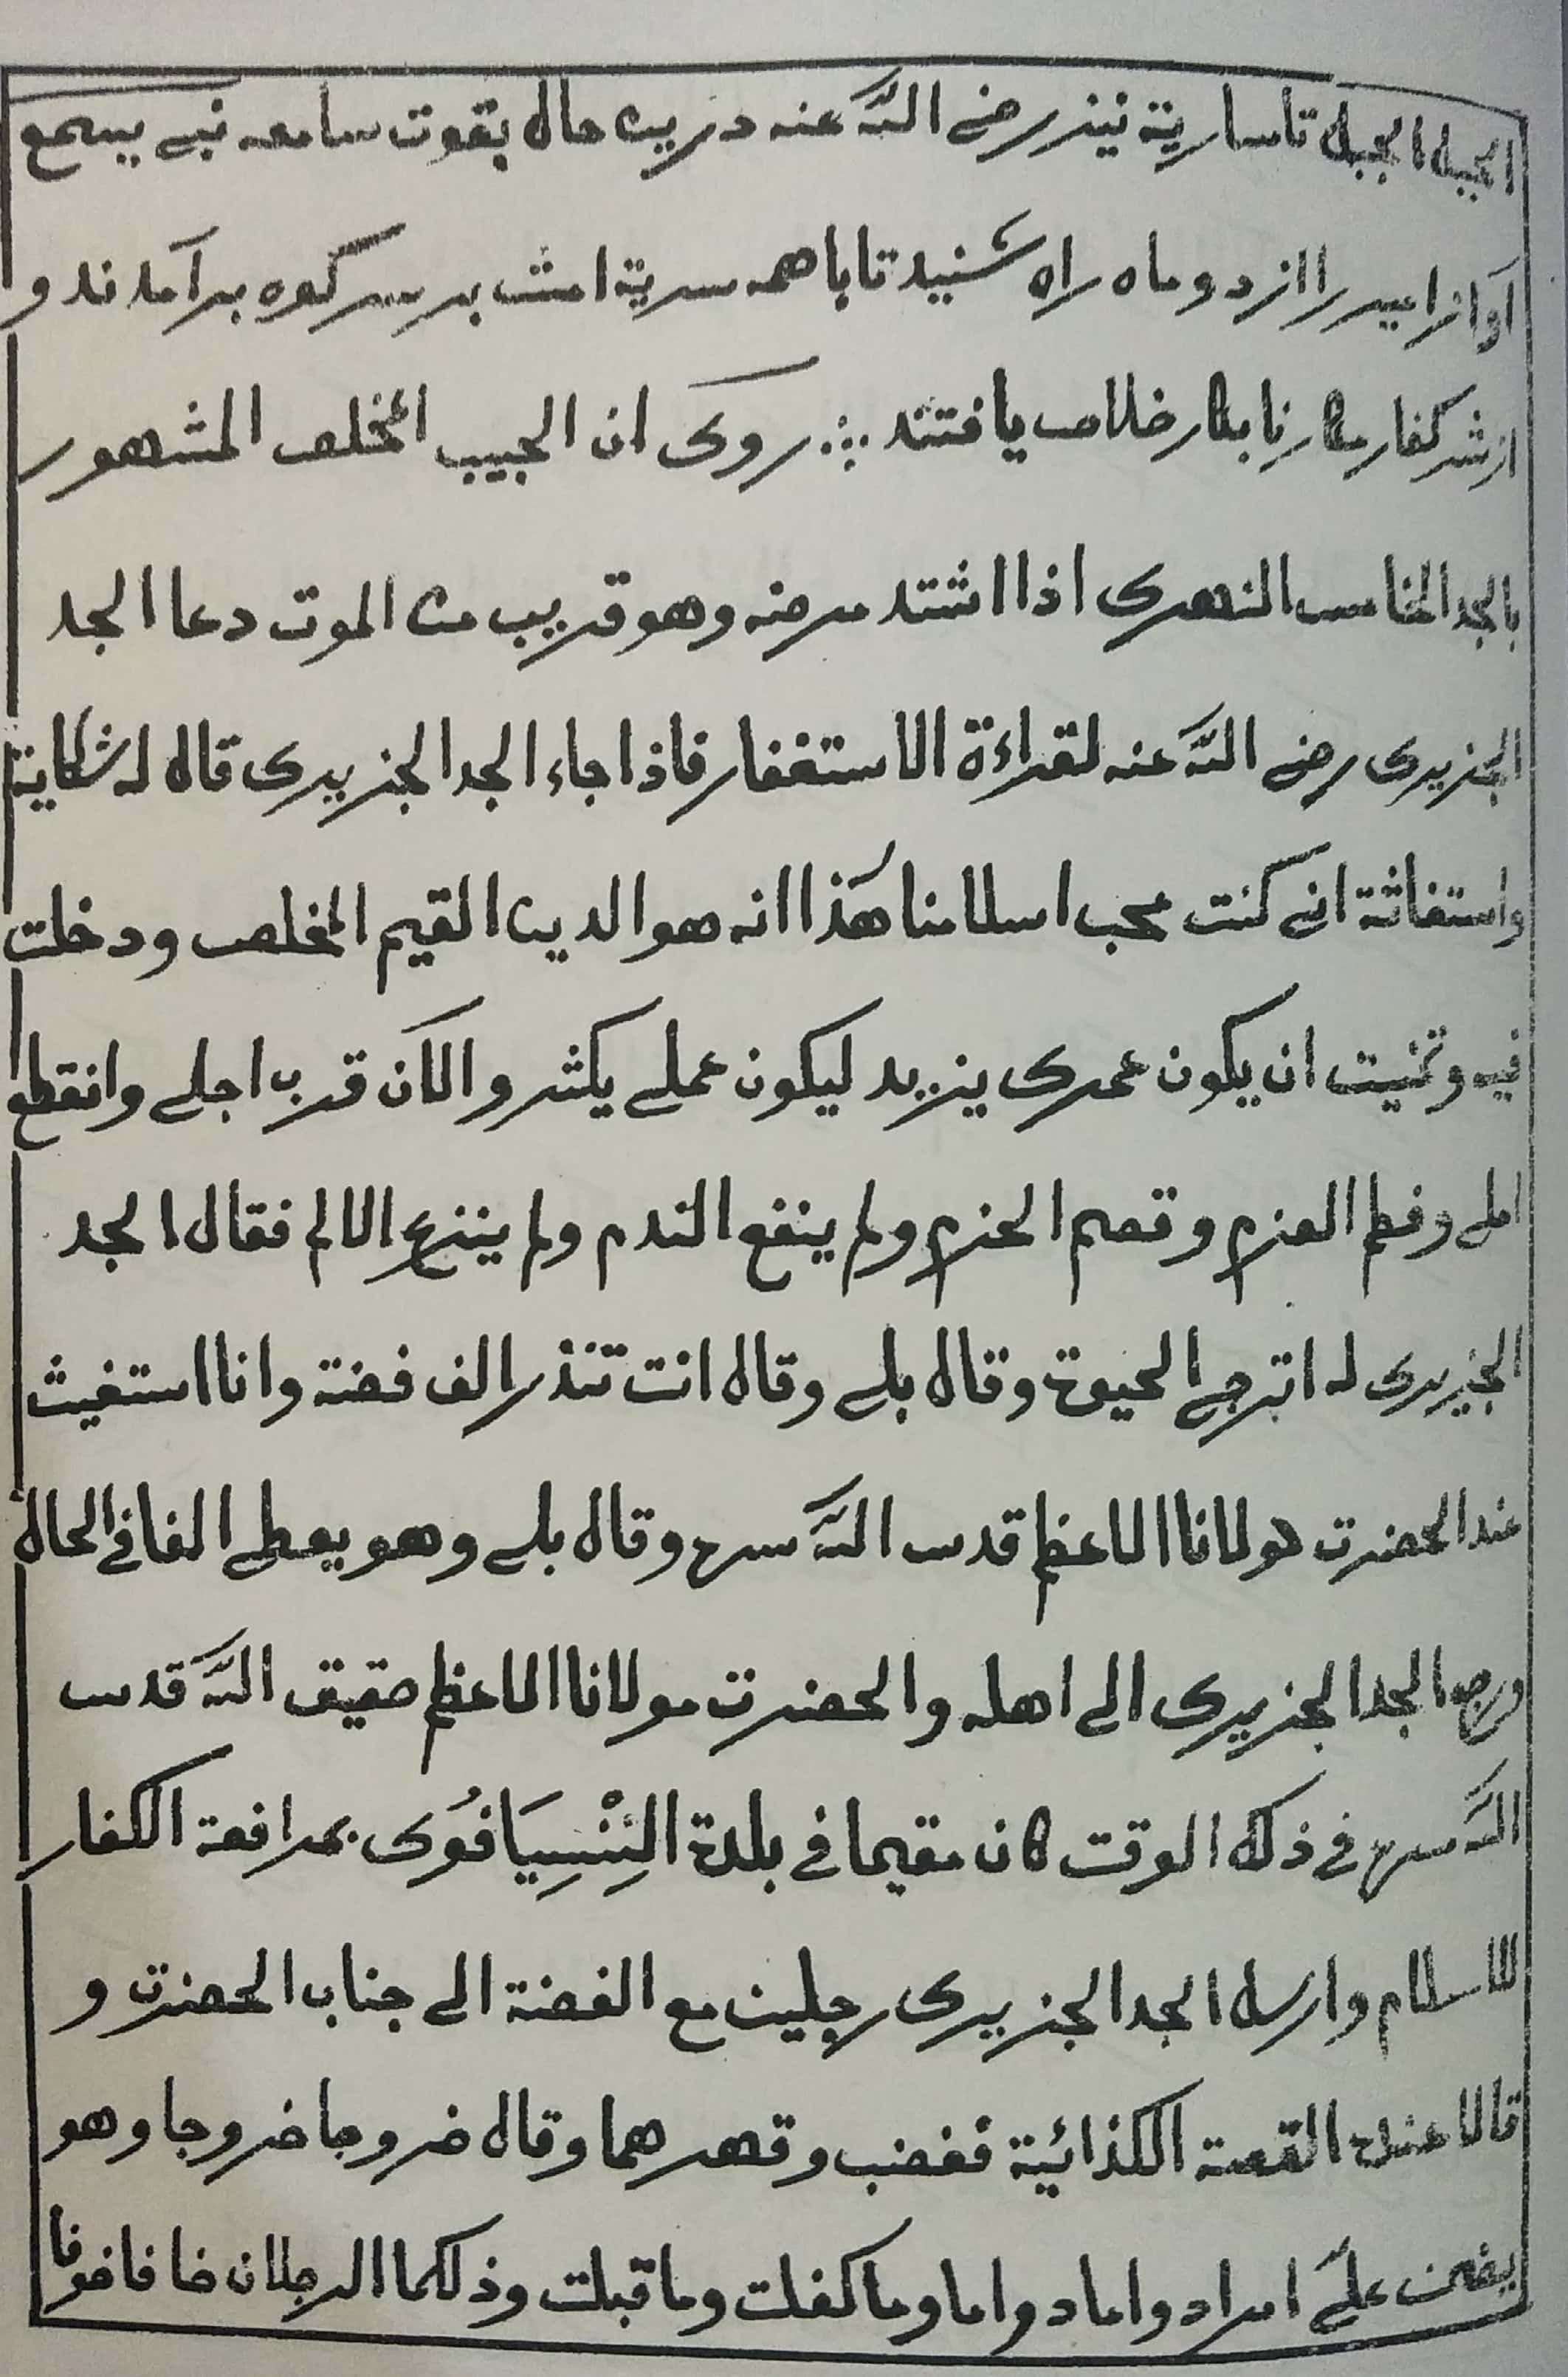 الجبل الجبل تا سارية نيز رضى الله عنه درين حال بقوت سامعه نبى يسمع
آواز امير را از دو ماه راه شنيد تا با همه سرية اش بر سر كوه برآمدند و
از شر كفار مكار نابكار خلاص يافتند ∴ روى ان الحبيب المخلص المشهور
بالجد الخامس النهرى اذا اشتد مرضه وهو قريب من الموت دعا الجد
الجزيرى رضى الله عنه لقراءة الاستغفار فاذا جاء الجد الجزيرى قال له شكاية
واستغاثة انى كنت محب اسلامنا هذا انه هو الدين القيم المخلص ودخلت
فيه وتمنيت ان يكون عمرى يزيد ليكون عملى يكثر والآن قرب اجلى وانقطع
املى وفطم العزم وقصم الحزم ولم ينفع الندم ولم ينزع الالم فقال الجد
الجزيرى له اترجى الحيوة وقال بلى وقال انت تنذر الف فضة وانا استغيث
عند الحضرت مولانا الاعظم قدس الله سره وقال بلى وهو يعطى الفا فى الحال
ورجع الجد الجزيرى الى اهله والحضرت مولانا الاعظم حقيق الله قدس
الله سره فى ذلك الوقت كان مقيما فى بلدة النِنْسِيَافُوى بمرافعة الكفار
للاسلام وارسل الجد الجزيرى رجلين مع الفضة الى جناب الحضرت و
قالا عنده القصة الكذائية فغضب وقهرهما وقال خروجا خروجا وهو
يفضن علىَّ امراد واماد واما وما كفلت وما قبلت وذلكما الرجلان خافا خوفا